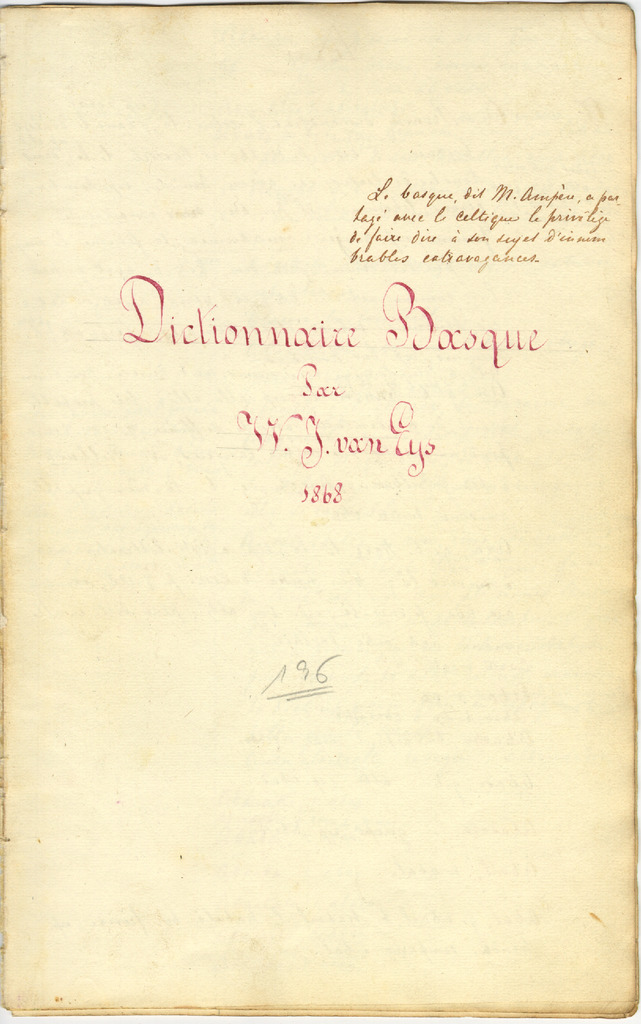 Le basque, dit M. Ampère, a par-
tagé avec le celtique le privilége
de faire dire à son sujet d'innom
brables extravagances.
Dictionnaire Basque
Par
W. J. van Eys
1868
196